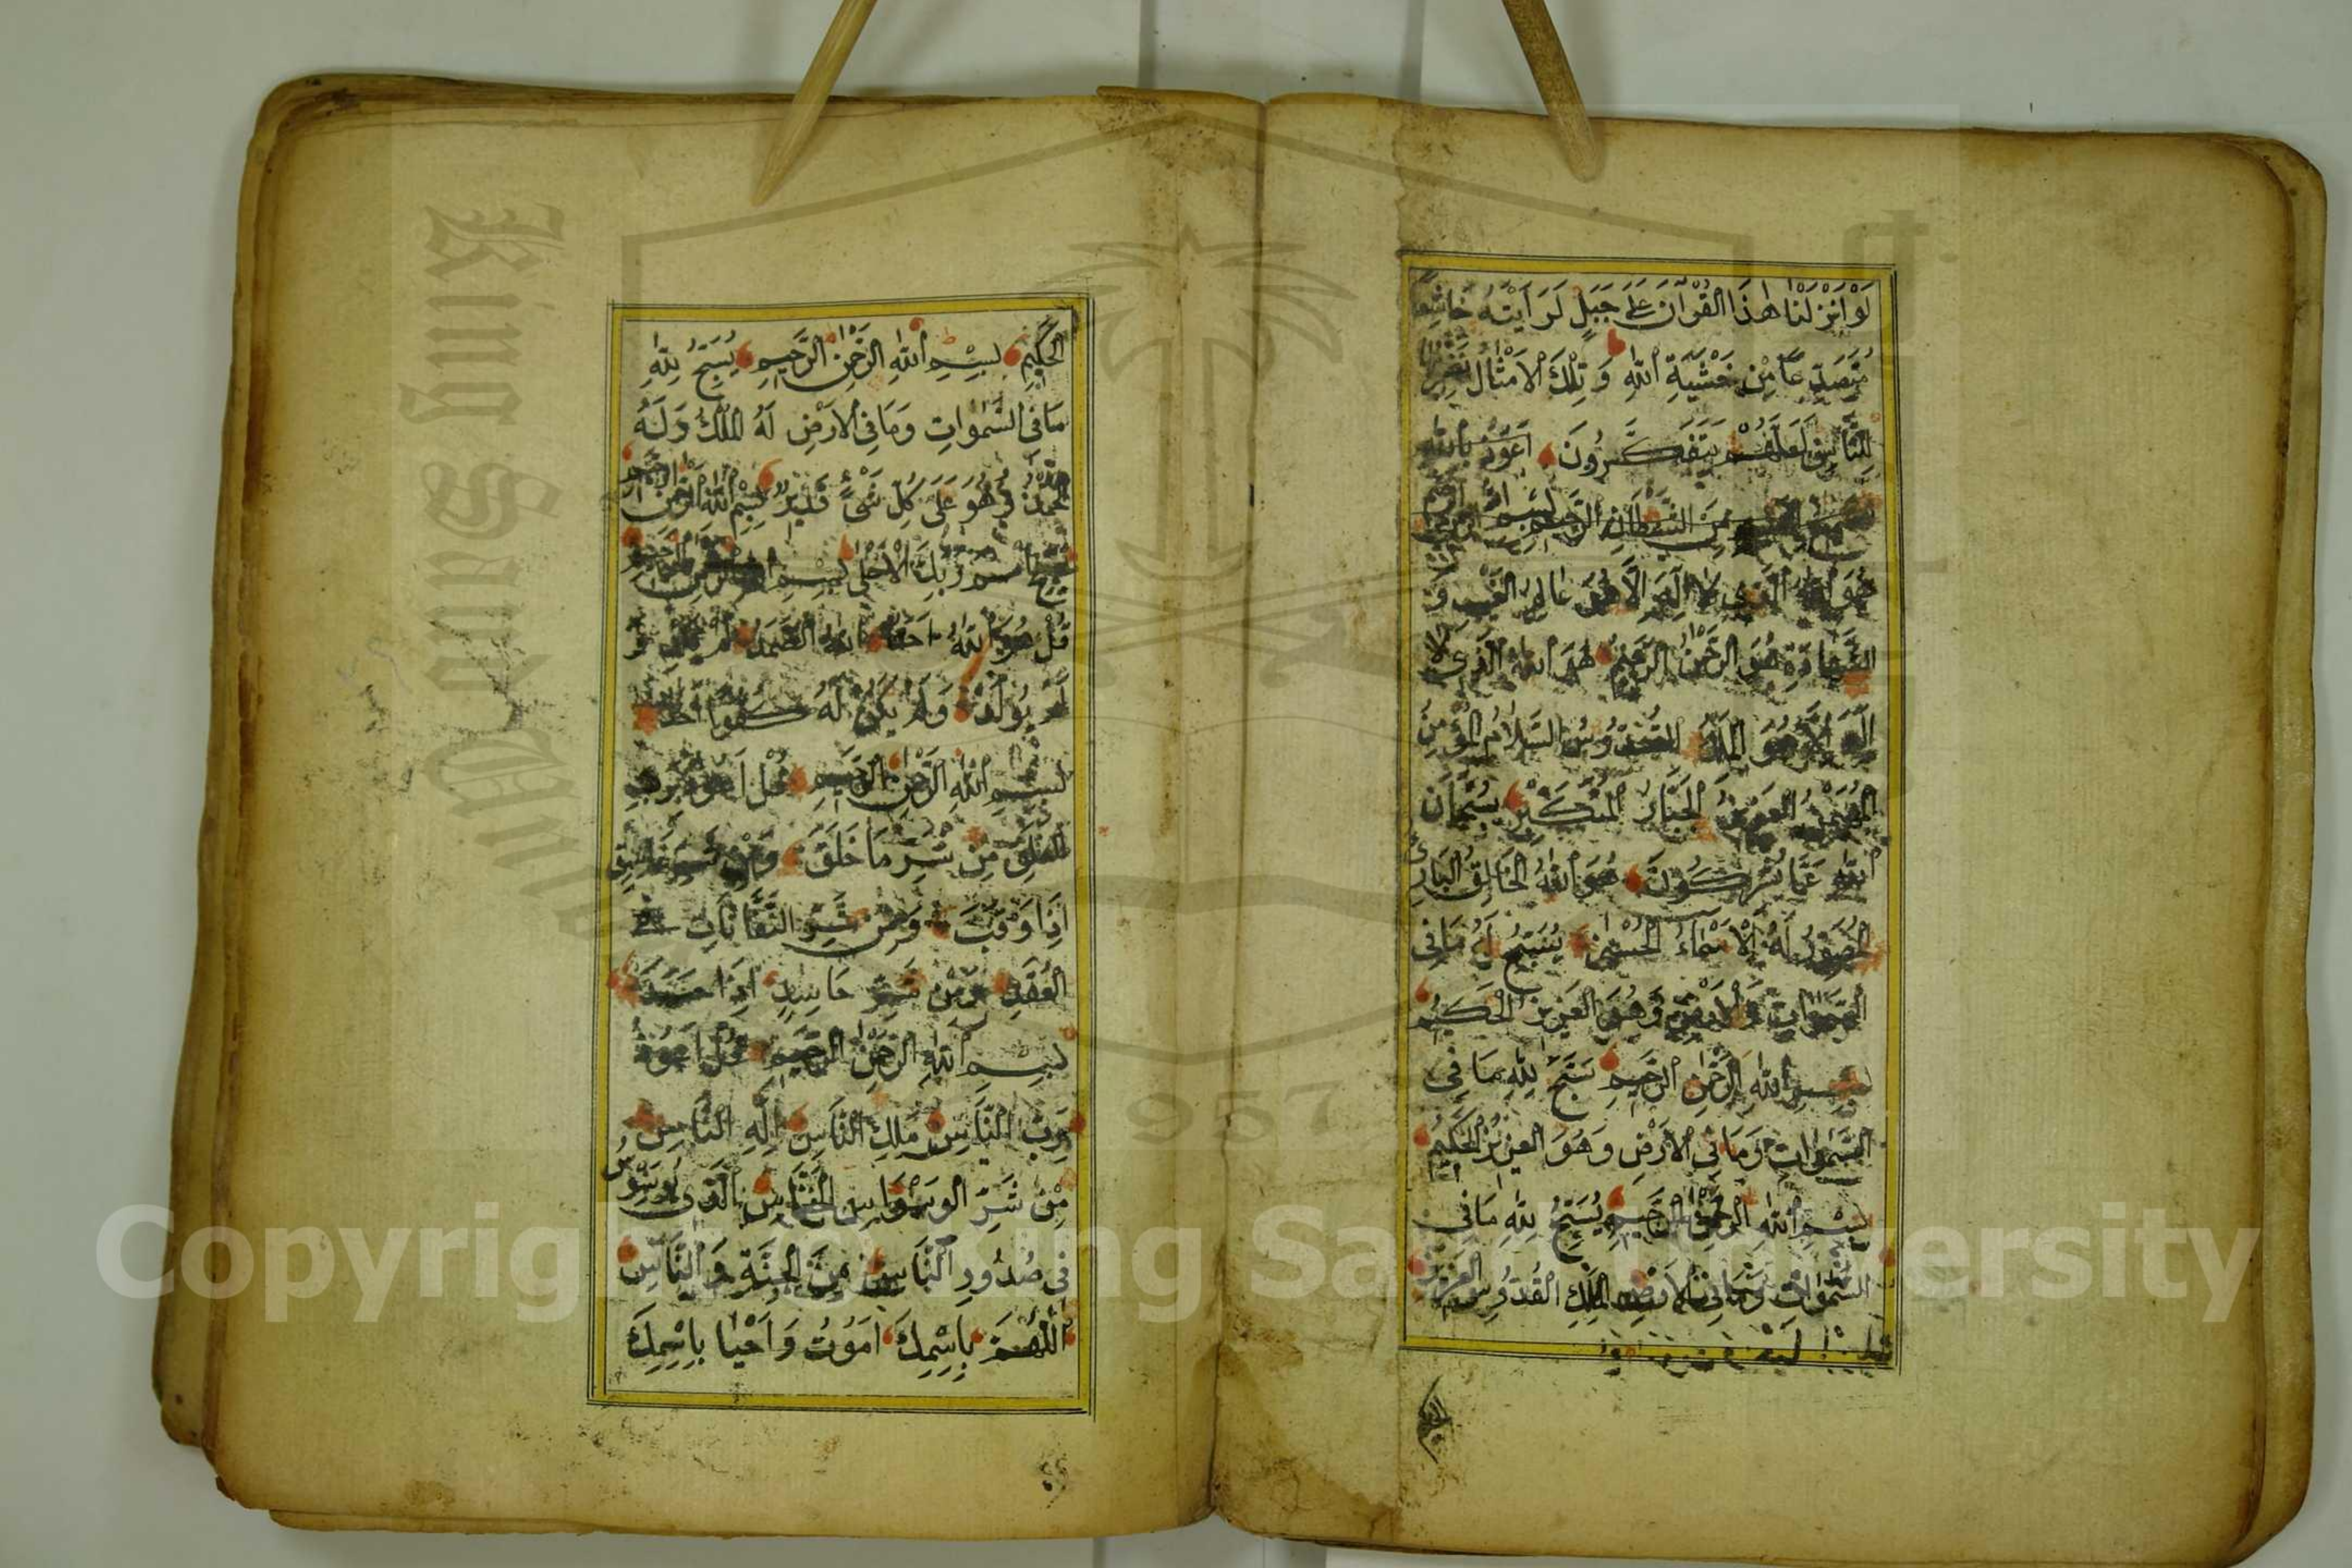 لَوْ اَنْزَلْنَا هٰذَا الْقُرْاٰنَ عَلَى جَبَلٍ لَرَاَيْتَهُ خَاشِعًا
مُتَصَدِّعًا مِنْ خَشْيَةِ اللّٰهِ وَتِلْكَ الْاَمْثَالُ نَضْرِبُهَا
لِلنَّاسِ لَعَلَّهُمْ يَتَفَكَّرُونَ اَعُوذُ بِاللّٰهِ
مِنَ الشَّيْطَانِ الرَّجِيمِ بِسْمِ اللّٰهِ
هُوَ اللّٰهُ الَّذِى لَا اِلٰهَ اِلَّا هُوَ عَالِمُ الْغَيْبِ وَ
الشَّهَادَةِ هُوَ الرَّحْمٰنُ الرَّحِيمُ هُوَ اللّٰهُ الَّذِى لَا
اِلٰهَ اِلَّا هُوَ الْمَلِكُ الْقُدُّوسُ السَّلَامُ الْمُؤْمِنُ
الْمُهَيْمِنُ الْعَزِيزُ الْجَبَّارُ الْمُتَكَبِّرُ سُبْحَانَ
اللّٰهِ عَمَّا يُشْرِكُونَ هُوَ اللّٰهُ الْخَالِقُ الْبَارِئُ
الْمُصَوِّرُ لَهُ الْاَسْمَاءُ الْحُسْنٰى يُسَبِّحُ لَهُ مَا فِى
السَّمٰوَاتِ وَالْاَرْضِ وَهُوَ الْعَزِيزُ الْحَكِيمُ
بِسْمِ اللّٰهِ الرَّحْمٰنِ الرَّحِيمِ سَبَّحَ لِلّٰهِ مَا فِى
السَّمٰوَاتِ وَمَا فِى الْاَرْضِ وَهُوَ الْعَزِيزُ الْحَكِيمُ
بِسْمِ اللّٰهِ الرَّحْمٰنِ الرَّحِيمِ يُسَبِّحُ لِلّٰهِ مَا فِى
السَّمٰوَاتِ وَمَا فِى الْاَرْضِ الْمَلِكِ الْقُدُّوسِ الْعَزِيزِ
الْحَكِيمِ بِسْمِ اللّٰهِ الرَّحْمٰنِ الرَّحِيمِ يُسَبِّحُ لِلّٰهِ
مَا فِى السَّمٰوَاتِ وَمَا فِى الْاَرْضِ لَهُ الْمُلْكُ وَلَهُ
الْحَمْدُ وَهُوَ عَلَى كُلِّ شَىْءٍ قَدِيرٌ بِسْمِ اللّٰهِ الرَّحْمٰنِ الرَّحِيمِ
سَبِّحِ اسْمَ رَبِّكَ الْاَعْلٰى بِسْمِ اللّٰهِ الرَّحْمٰنِ الرَّحِيمِ
قُلْ هُوَ اللّٰهُ اَحَدٌ اللّٰهُ الصَّمَدُ لَمْ يَلِدْ وَ
لَمْ يُولَدْ وَلَمْ يَكُنْ لَهُ كُفُوًا اَحَدٌ
بِسْمِ اللّٰهِ الرَّحْمٰنِ الرَّحِيمِ قُلْ اَعُوذُ بِرَبِّ
الْفَلَقِ مِنْ شَرِّ مَا خَلَقَ وَمِنْ شَرِّ غَاسِقٍ
اِذَا وَقَبَ وَمِنْ شَرِّ النَّفَّاثَاتِ فِى
الْعُقَدِ وَمِنْ شَرِّ حَاسِدٍ اِذَا حَسَدَ
بِسْمِ اللّٰهِ الرَّحْمٰنِ الرَّحِيمِ قُلْ اَعُوذُ
بِرَبِّ النَّاسِ مَلِكِ النَّاسِ اِلٰهِ النَّاسِ
مِنْ شَرِّ الْوَسْوَاسِ الْخَنَّاسِ الَّذِى يُوَسْوِسُ
فِى صُدُورِ النَّاسِ مِنَ الْجِنَّةِ وَالنَّاسِ
اَللّٰهُمَّ بِاسْمِكَ اَمُوتُ وَاَحْيَا بِاسْمِكَ
King Saud University
1957
Copyright © King Saud University